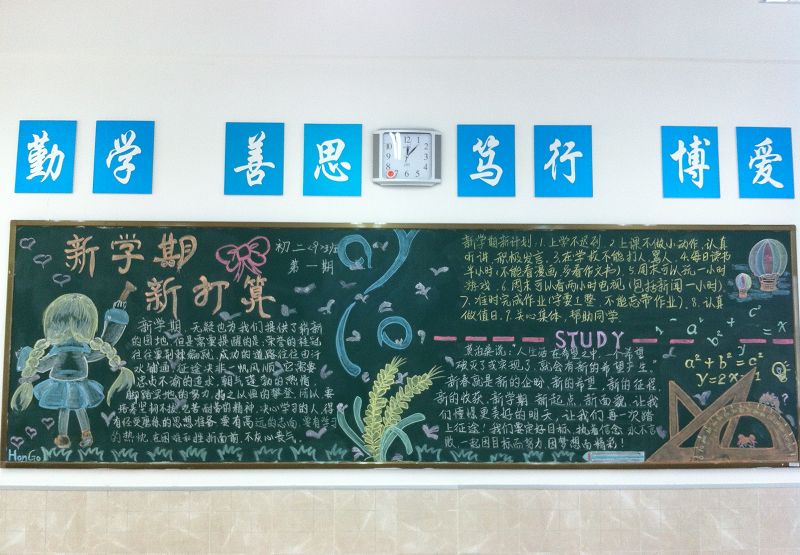 勤学 善思 笃行 博爱
新学期
新打算
初二(9)班
第一期
新学期,无疑也为我们提供了崭新
的园地,但是需要提醒的是:荣誉的桂冠
往往要荆棘编就,成功的道路往往由汗
水铺通。征途决非一帆风顺,它需要
坚贞不渝的追求,朝气蓬勃的热情,
脚踏实地的努力,持之以恒的攀登,所以要
培养坚韧不拔,吃苦耐劳的精神,决心学习的人,得
有经受磨炼的思想准备,要有高远的志向,要有学习
的热忱,在困难和挫折面前,不灰心丧气。
HonGo
新学期新计划:1.上学不迟到,2.上课不做小动作,认真
听讲,积极发言,3.在学校不能打人、骂人,4.每日读书
半小时(不能看漫画,多看作文书),5.周末可以玩一小时
游戏,6.周末可以看两小时电视(包括新闻一小时),
7.准时完成作业(字要工整,不能忘带作业),8.认真
做值日,9.关心集体,帮助同学.
STUDY
莫泊桑说:“人生活在希望之中,一个希望
破灭了或实现了,就会有新的希望产生。”
新春就是新的企盼,新的希望,新的征程
新的收获,新学期,新起点,新面貌,让我
们憧憬更美好的明天,让我们再一次踏
上征途!我们要定好目标,执着信念,永不言
败,一起因目标而努力,因梦想而精彩!
a²+b²=c²
y=2x-1